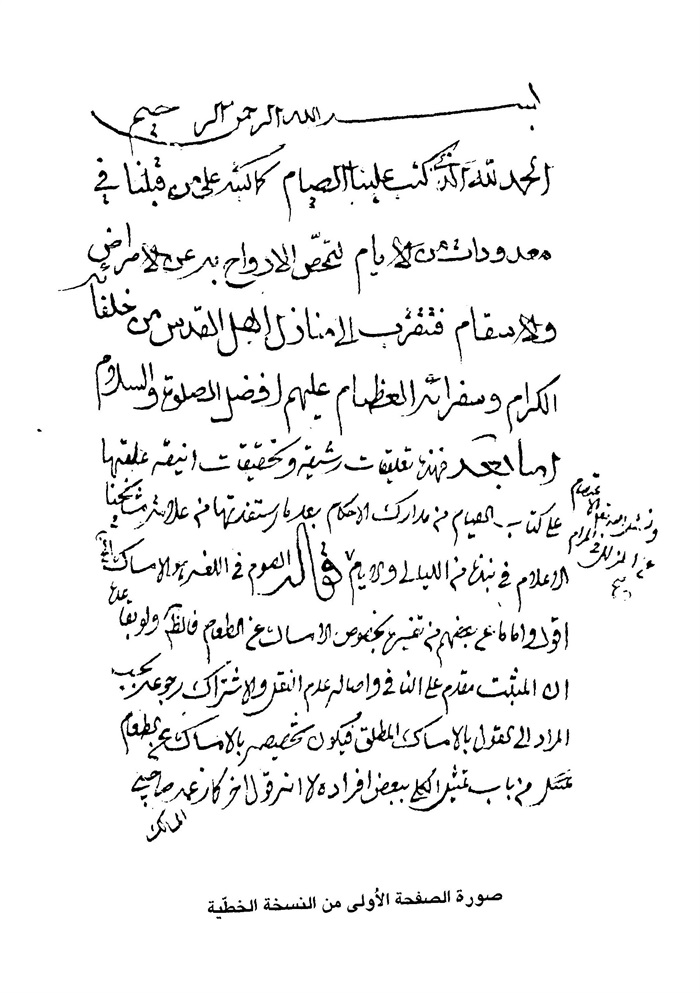 بسم الله الرحمن الرحيم
الحمد لله الذي كتب علينا الصيام كما كتبه على من قبلنا في
معدودات من الايام لتمحّص الارواح به عن الامراض
والاسقام فتقرب الى منازل اهل القدس من خلفائه
الكرام وسفرائه العظام عليهم افضل الصلوة والسلام
اما بعد فهذه تعليقات رشيقه وتحقيقات انيقه علقتها
على كتاب الصيام من مدارك الاحكام بعد ما استفدتها من علامة مشايخنا
الاعلام في نبذة من الليالي والايام قال الصوم في اللغه هو الامساك الخ
اقول واما ما عن بعضهم من تفسيره بخصوص الامساك عن الطعام فالظ انه ولو بقاعدة
ان المثبت مقدم على النافي واصالة عدم النقل والاشتراك رجوعه بحسب
المراد الى القول بالامساك المطلق فيكون تخصيصه بالامساك عن الطعام
من باب تمثيل الكلي ببعض افراده لا انه قول اخر كما زعمه صاحب
المسالك
الاعتصام
المزالق في المرام
صورة الصفحة الأولى من النسخة الخطّية